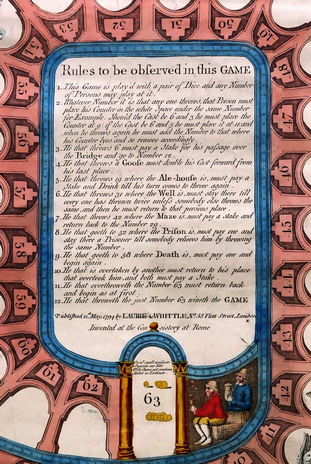 Rules to be observed in this GAME
1. This Game is play'd with a pair of Dice and any Number
of Persons may play at it.
2. Whatever Number it is that any one throws, that Person must
place his Counter in the white Space under the same Number
for Example, Should the Cast be 6 and 3 he must place the
Counter at 9 if the Cast be 6 and 5 he must place it at 11 and
when he throws again he must add the Number to that where
his Counter lyes and so remove accordingly.
3. He that throws 6 must pay a Stake for his passage over
the Bridge and go to Number 12.
4. He that throws a Goose must double his Cast forward from
his last place.
5. He that throws 19 where the Ale-house is, must pay a
Stake and Drink till his turn comes to throw again.
6. He that throws 31 where the Well is, must stay there till
every one has thrown twice unless somebody else throws the
same, and then he must return to that persons place.
7. He that throws 42 where the Maze is, must pay a Stake and
return back to the Number 29.
8. He that goeth to 52 where the Prison is, must pay one and
stay there a Prisoner till somebody relieves him by throwing
the same Number.
9. He that goeth to 58 where Death is, must pay one and
begin again.
10. He that is overtaken by another must return to his place
that overtook him, and both must pay a Stake.
11. He that overthroweth the Number 63 must return back
and begin as at first.
12. He that throweth the just Number 63 winneth the GAME
Publish'd 12 May, 1794 by LAURIE & WHITTLE, No. 53 Fleet Street, London
Invented at the Consistory at Rome
63
50
51
52
53
54
55
56
57
58
59
60
61
62
49
48
47
46
45
44
43
42
41